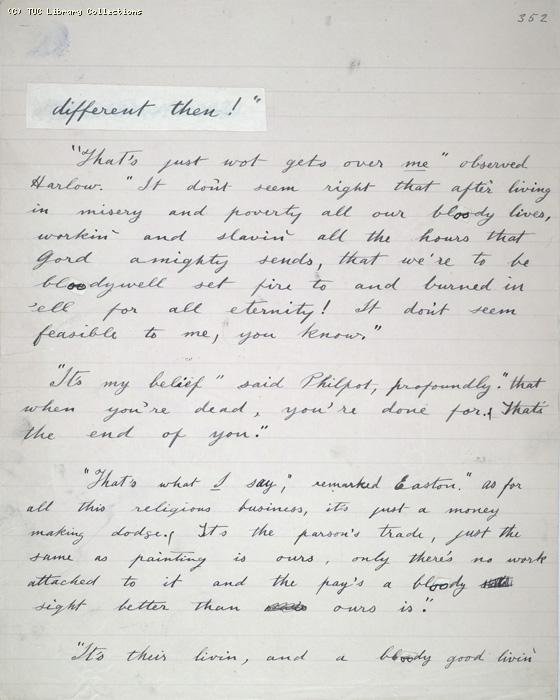 (C) TUC Library Collections
352
different then!"
"That's just wot gets over me" observed
Harlow. "It don't seem right that after living
in misery and poverty all our bloody lives,
workin' and slavin' all the hours that
Gord amighty sends, that we're to be
bloodywell set fire to and burned in
'ell for all eternity! It don't seem
feasible to me, you know."
"It's my belief" said Philpot, profoundly. "that
when you're dead, you're done for. That's
the end of you."
"That's what I say," remarked Easton." as for
all this religious business, its just a money
making dodge. It's the parson's trade, just the
same as painting is ours, only there's no work
attached to it and the pay's a bloody
sight better than ours is."
"It's their livin, and a bloody good livin'